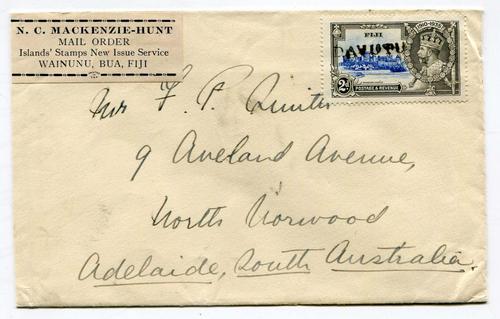 N. C. MACKENZIE-HUNT
MAIL ORDER
Islands' Stamps New Issue Service
WAINUNU, BUA, FIJI
FIJI
1910-1935
2D
POSTAGE & REVENUE
Mr F. P.
9 Aveland Avenue,
North Norwood
Adelaide, South Australia.